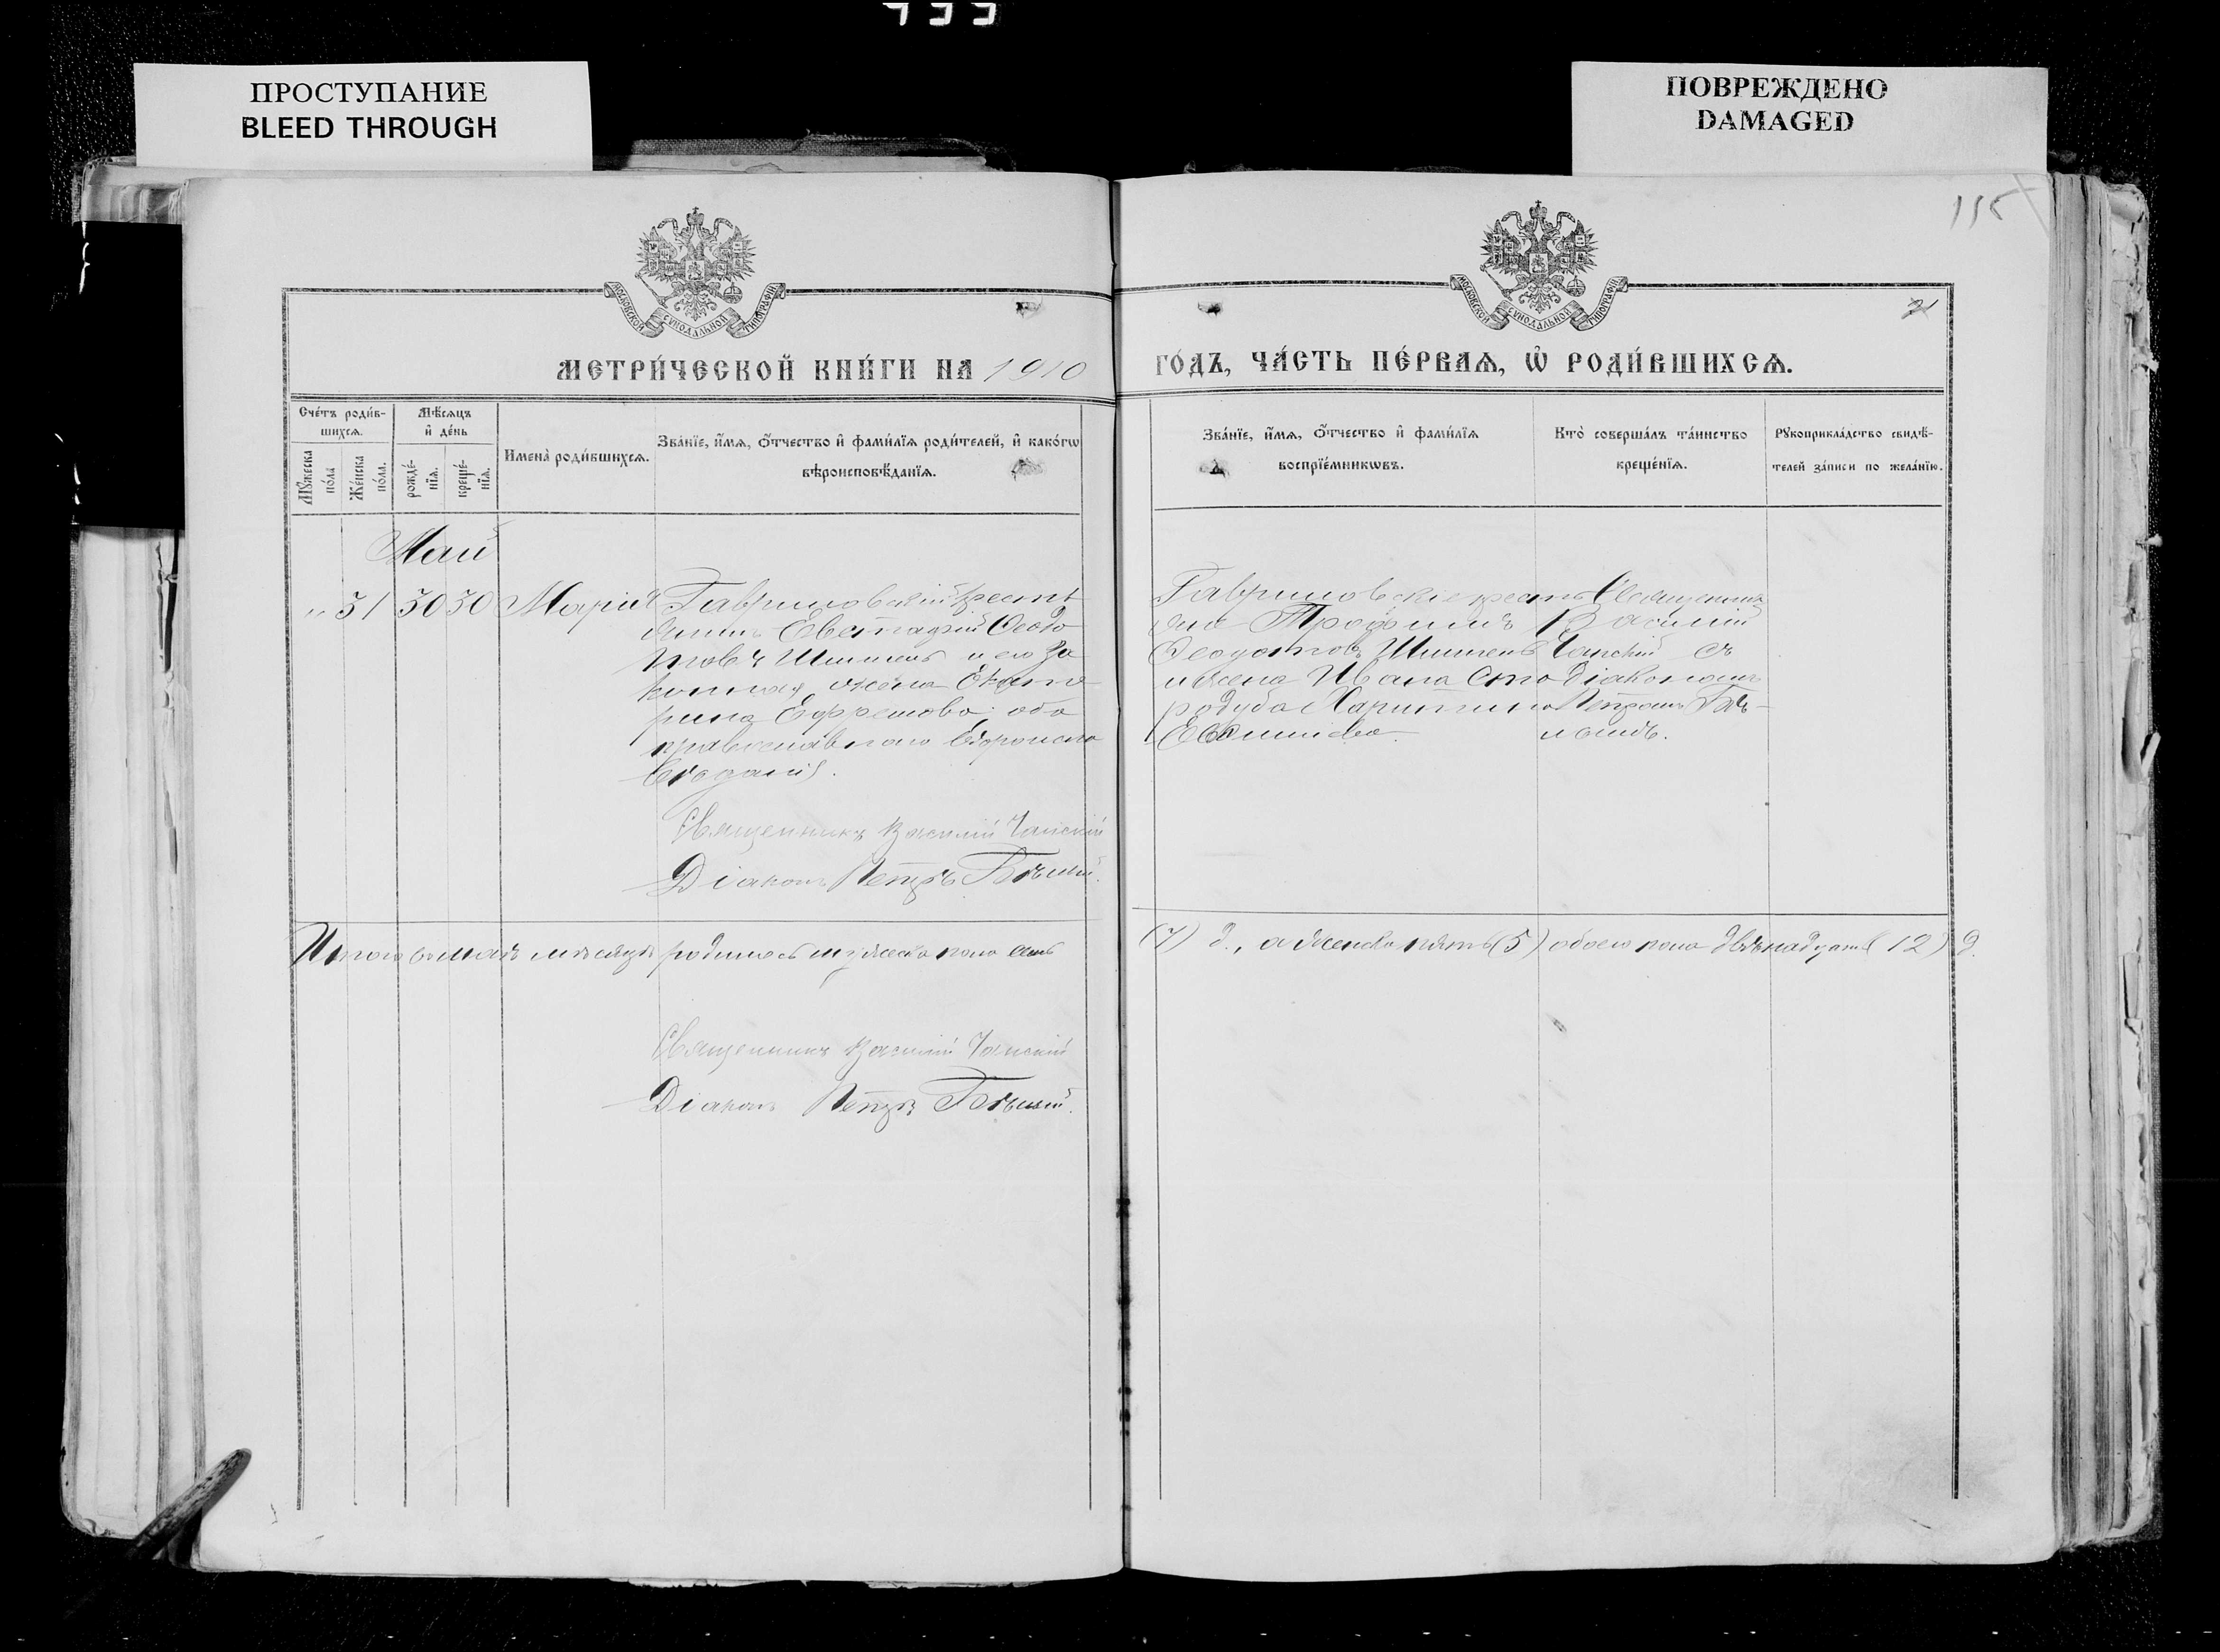 ПРОСТУПАНИЕ
BLEED THROUGH
ПОВРЕЖДЕНО
DAMAGED
115
МОСКОВСКОЙ СѴНОДАЛЬНОЙ ТИПОГРАФІИ
МОСКОВСКОЙ СѴНОДАЛЬНОЙ ТИПОГРАФІИ
21
МЕТРИ́ЧЕСКОЙ КНИ́ГИ НА 1910
ГО́ДЪ, ЧА́СТЬ ПЕ́РВАѦ, Ѡ РОДИ́ВШИХСѦ.
Сче́тъ роди́в-
шихсѧ.
Мꙋжеска по́ла
Же́нска по́ла.
Мѣ́сѧцъ
и҆ де́нь
рожде́-
нїѧ.
креще́-
нїѧ.
Имена̀ роди́вшихсѧ.
Зва́нїе, и҆́мѧ, ѻ҆́тчество и҆ фами́лїѧ роди́телей, и҆ како́гѡ
вѣроисповѣ́данїѧ.
Зва́нїе, и҆́мѧ, ѻ҆́тчество и҆ фами́лїѧ
воспрїе́мникѡвъ.
Кто̀ соверша́лъ та́инство
креще́нїѧ.
Рꙋкоприкла́дство свидѣ́-
телей за́писи по жела́нїю.
Май
„ 31 30 30 Марія
Гавриловскій крест
янинъ Евстафій Ѳедо
товъ Шишень и его за
конная жена Екате
рина Ефремова; оба
православнаго вѣроиспо
вѣданія.
Священникъ Василій Чапскій
Діаконъ Петръ Бѣлый.
Гавриловскіе кресть
яне Трофимъ
Ѳеодотовъ Шишень
и жена Ивана Ста
родуба Харитина
Священникъ
Василій
Чапскій съ
діакономъ
Петромъ Бѣ-
лымъ.
Итого въ маѣ мѣсяцѣ родилось мужеска пола семь
(7) д., а женска пять (5) обоего пола двѣнадцать (12) д.
Священникъ Василій Чапскій
Діаконъ Петръ Бѣлый.